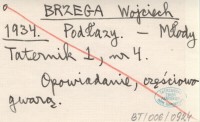 BRZEGA Wojciech
1934. Podłazy. — Młody
Taternik 1, nr 4.
Opowiadanie, częściowo
gwarą.
BT/006/0984